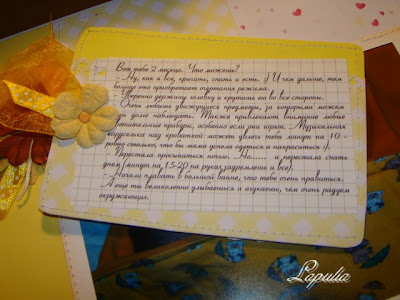 Вот тебе 2 месяца. Что можешь?
- Ну, как и все, кричать, спать и есть. :) И чем дальше, тем
больше это приобретает очертания режима.
- Уверенно держишь головку и крутишь ею во все стороны.
- Очень любишь движущиеся предметы, за которыми можем
долго наблюдать. Также привлекают внимание любые
приборы, особенно если они горят. Музыкальная
каруселька над кроваткой может увлечь тебя минут на 10 -
ровно столько, что бы мама успела одеться и накраситься :).
- Перестала просыпаться ночью. Но....... и перестала спать
днем (минут на 15-20 на руках задремлешь и все).
- Начали плавать в большой ванне, что тебе очень нравиться.
- А еще ты великолепно улыбаешься и агукаешь, чем очень радуешь
окружающих.
Lapulia